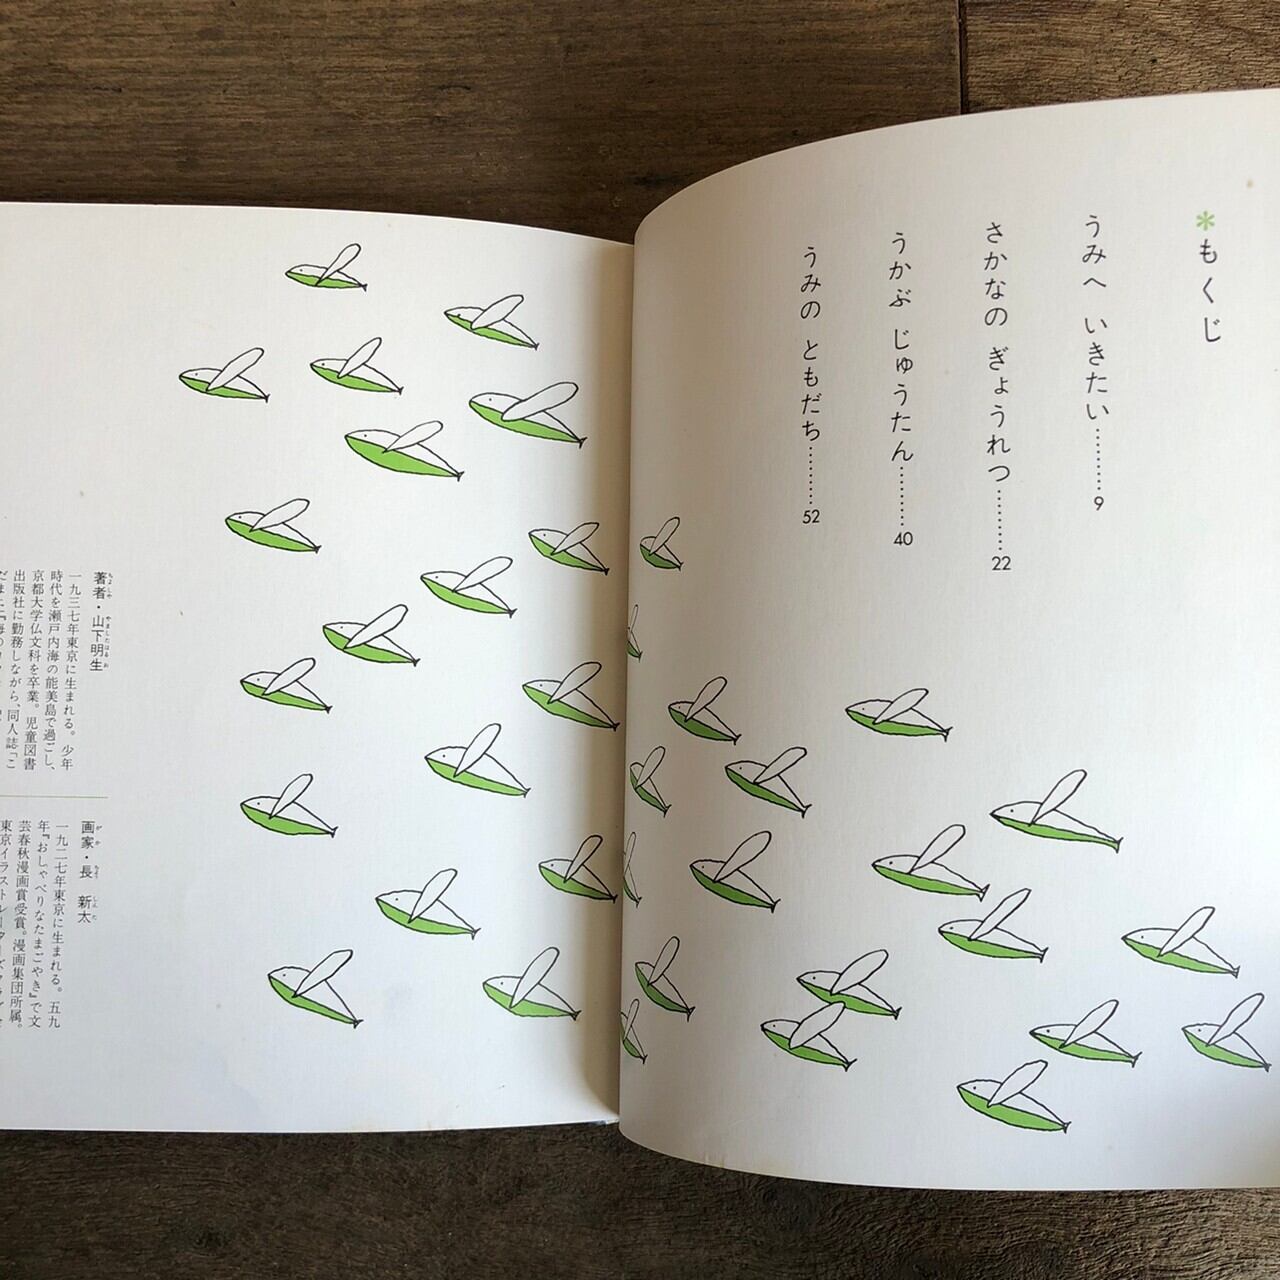 *もくじ
うみへ いきたい………9
さかなの ぎょうれつ………22
うかぶ じゅうたん………40
うみの ともだち………52
著者・山下明生
ちょしゃ やましたはるお
一九三七年東京に生まれる。少年
時代を瀬戸内海の能美島で過ごし、
京都大学仏文科を卒業。児童図書
出版社に勤務しながら、同人誌「こ
画家・長 新太
がか ちょう しんた
一九二七年東京に生まれる。五九
年『おしゃべりなたまごやき』で文
芸春秋漫画賞受賞。漫画集団所属。